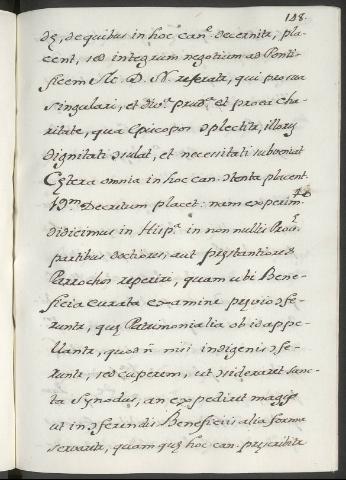 148.
dę, de quibus in hoc can.e decernitr, pla-
cent, sed integrum negotium ad Ponti-
ficem Ste D. N. referatr, qui pro sua
singulari, et div.a prud.a et pro ea cha-
ritate, qua Episcopos cplectitr, illorũ
dignitati csulat, et necessitati subveniat
Cętera omnia in hoc can. ctenta placent.
19m Decretum placet: nam experim.to
didicimus in Hisp.a in non nullis Prou.e
partibus doctiores, aut pręstantiores
Parrochos reperiri, quam ubi Bene-
ficia curata examine pręvio cfe-
runtr, quę Patrimonialia ob id appe-
llantr, quod ñ nisi indigenis cfe-
runtr, sed cuperem, ut csideraret sanc-
ta Synodus, an expediret magis
ut in cferendis Beneficiis alia forma
servaretr, quam quę hoc can. pręscribitr